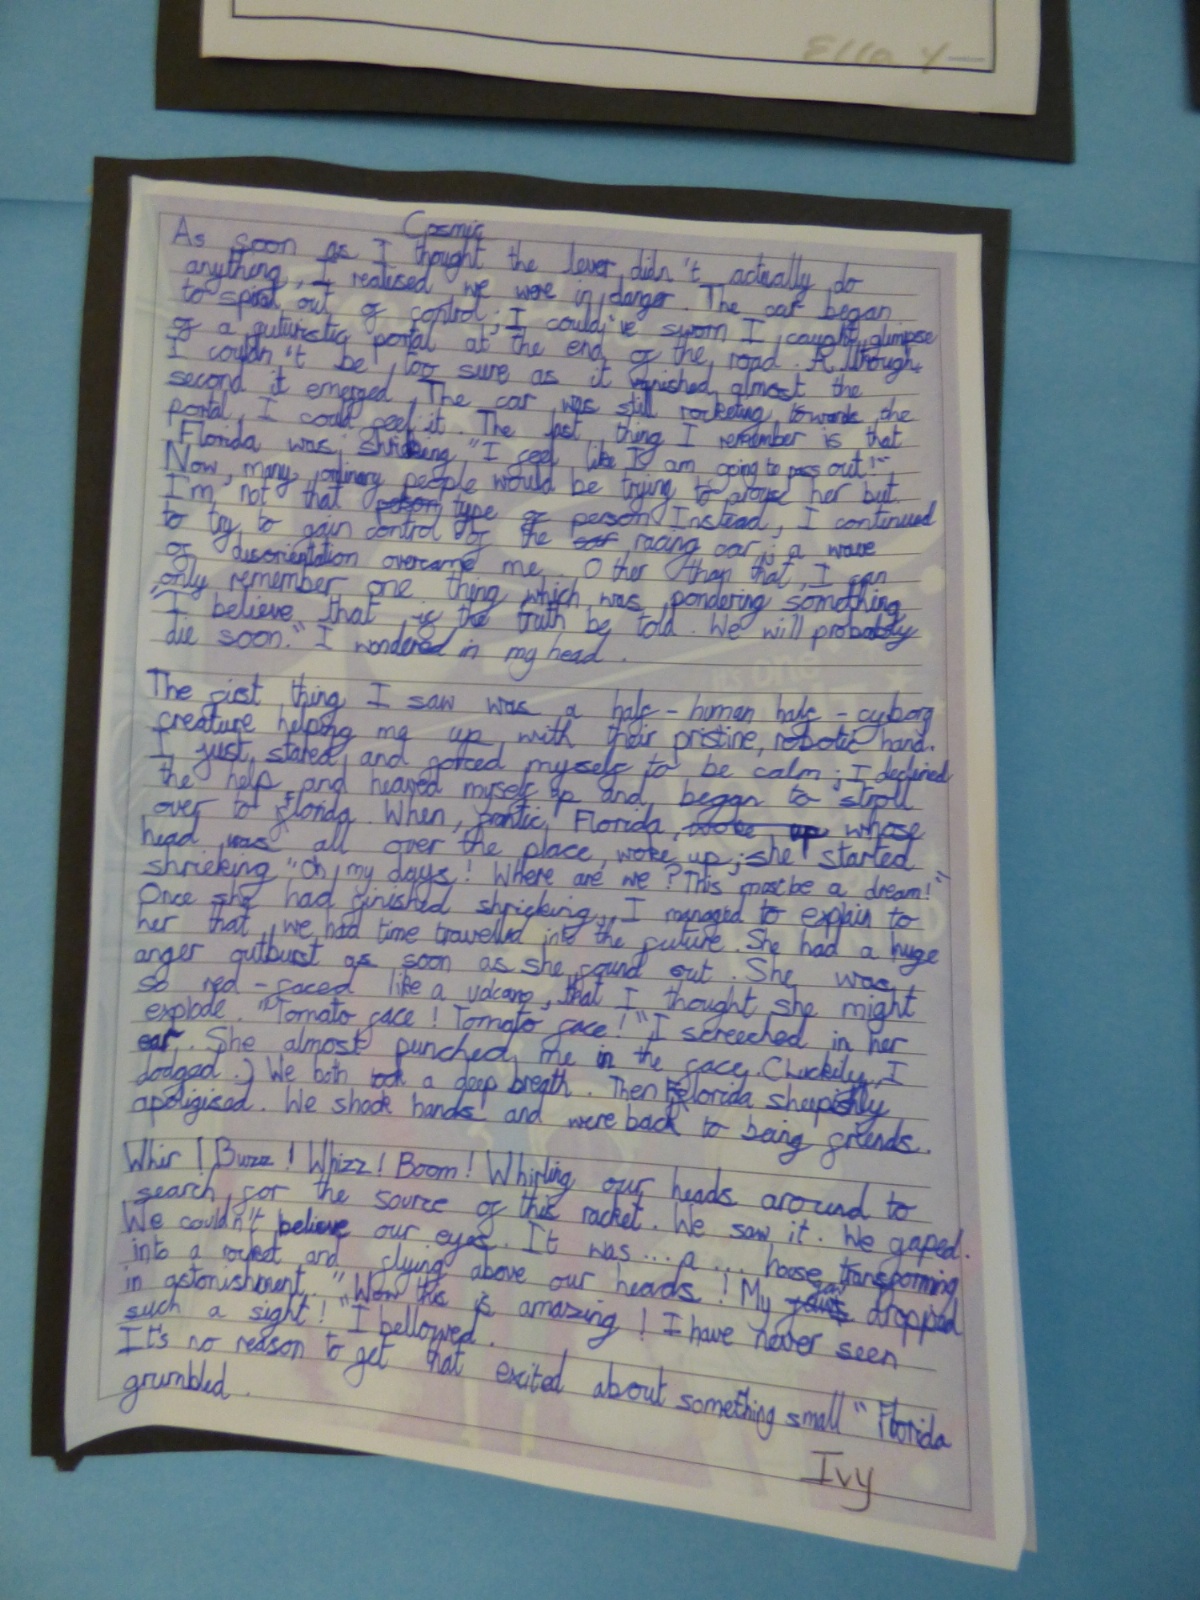 Ella Y
Cosmic
As soon as I thought the lever didn't actually do
anything, I realised we were in danger. The car began
to spiral out of control; I could've sworn I caught glimpse
of a futuristic portal at the end of the road. Allthough,
I couldn't be too sure as it vanished almost the
second it emerged. The car was still rocketing towards the
portal, I could feel it. The last thing I remember is that
Florida was shrieking "I feel like I am going to pass out!"
Now, many ordinary people would be trying to arouse her but
I'm not that type of person. Instead, I continued
to try to gain control of the racing car; a wave
of disorientation overcame me. Other than that, I can
only remember one thing which was pondering something
"I believe that is the truth be told. We will probably
die soon." I wondered in my head.
The first thing I saw was a half-human half-cyborg
creature helping me up with their pristine, robotic hand.
I just stared and forced myself to be calm; I declined
the help and heaved myself up and began to stroll
over to Florida. When, frantic, Florida, whose
head was all over the place, woke up; she started
shrieking "Oh my days! Where are we? This must be a dream!"
Once she had finished shrieking, I managed to explain to
her that we had time travelled into the future. She had a huge
anger outburst as soon as she found out. She was
so red-faced like a volcano, that I thought she might
explode. "Tomato face! Tomato face!" I screeched in her
ear. She almost punched me in the face. (Luckily, I
dodged.) We both took a deep breath. Then Florida
apoligised. We shook hands and were back to being friends.
Whir! Buzz! Whizz! Boom! Whirling our heads around to
search for the source of this racket. We saw it. We gaped.
We couldn't believe our eyes. It was... a... house transforming
into a rocket and flying above our heads! My jaw dropped
in astonishment. "Wow this is amazing! I have never seen
such a sight!" I bellowed.
It's no reason to get that excited about something small" Florida
grumbled.
Ivy